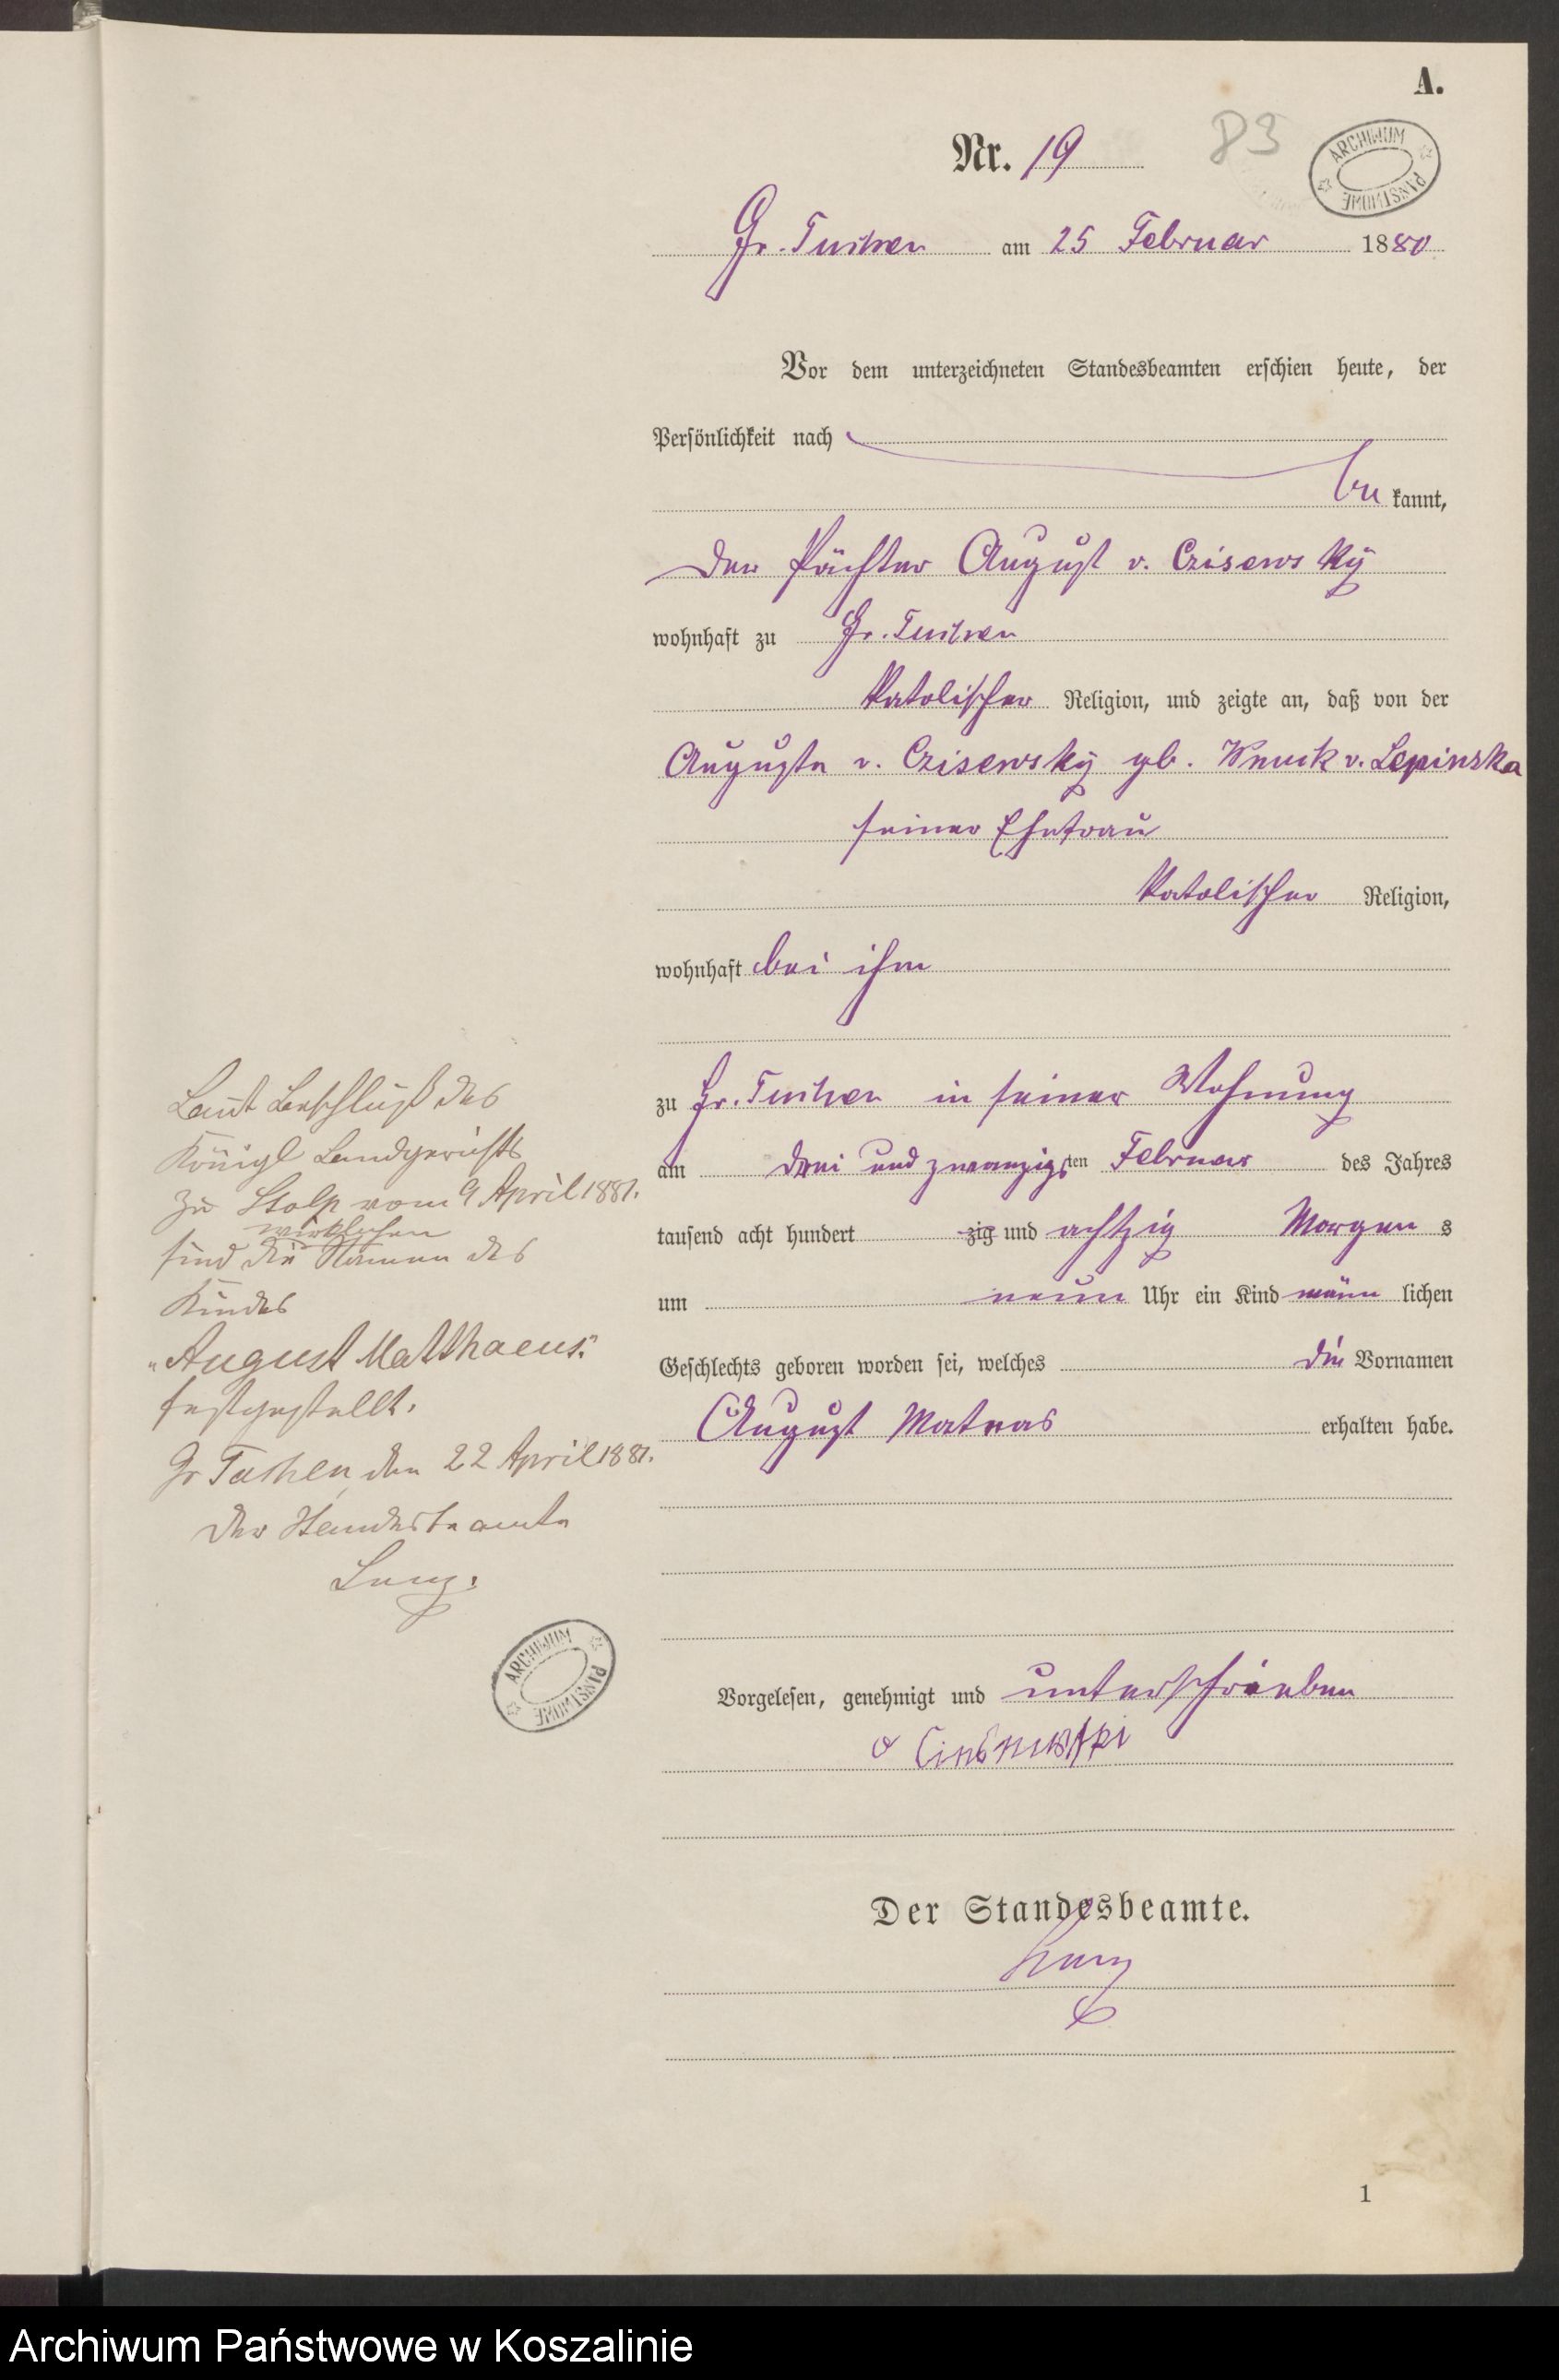 A.
Nr. 19
83
ARCHIWUM PAŃSTWOWE
Gr. Tuchen am 25 Februar 1880
Vor dem unterzeichneten Standesbeamten erschien heute, der
Persönlichkeit nach
be kannt,
der Pächter August v. Czisewsky
wohnhaft zu Gr. Tuchen
katolischer Religion, und zeigte an, daß von der
Auguste v. Czisewsky gb. Wnuck v. Lepinska
seiner Ehefrau
katolischer Religion,
wohnhaft bei ihm
zu Gr. Tuchen in seiner Wohnung
am drei und zwanzigsten Februar des Jahres
tausend acht hundert zig und achtzig Morgen s
um neun Uhr ein Kind männ lichen
Geschlechts geboren worden sei, welches die Vornamen
August Mateas erhalten habe.
Vorgelesen, genehmigt und unterschrieben
v
Der Standesbeamte.
Laut Beschluß des
Königl Landgerichts
zu Stolp vom 9 April 1881.
wirklichen
sind die Namen des
Kindes
"August Matthaeus."
festgestellt.
Gr Tuchen, den 22 April 1881.
Der Standesbeamte
ARCHIWUM PAŃSTWOWE
1
Archiwum Państwowe w Koszalinie